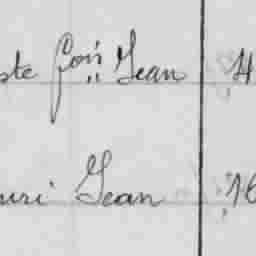 ste fçois Jean 4
uri Jean 16